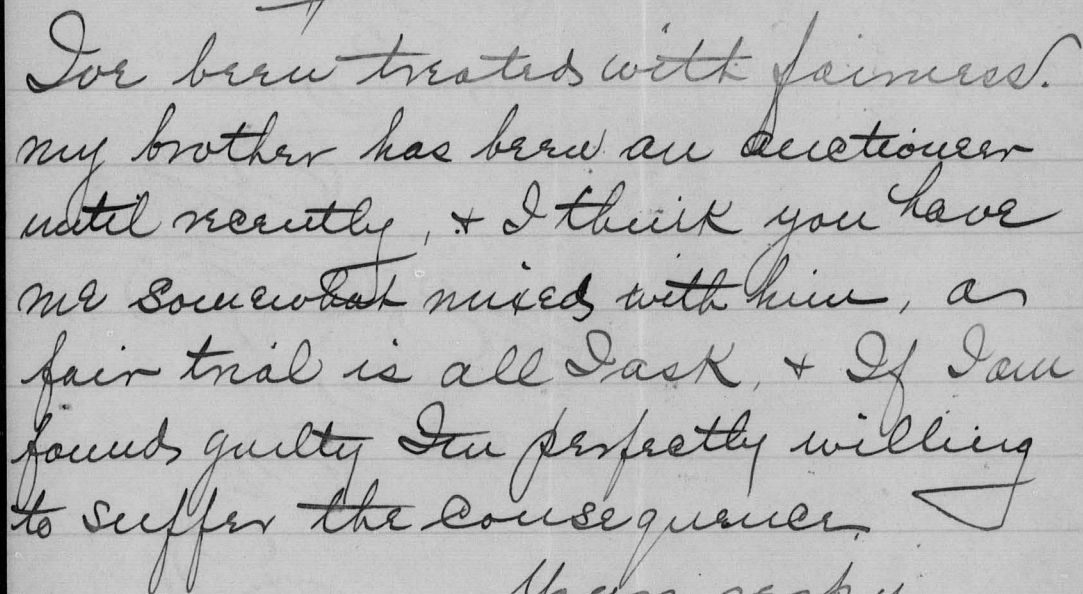 Ive been treated with fairness.
my brother has been an auctioneer
until recently, & I think you have
me somewhat mixed with him, a
fair trial is all I ask, & If I am
found guilty Im perfectly willing
to suffer the consequence.